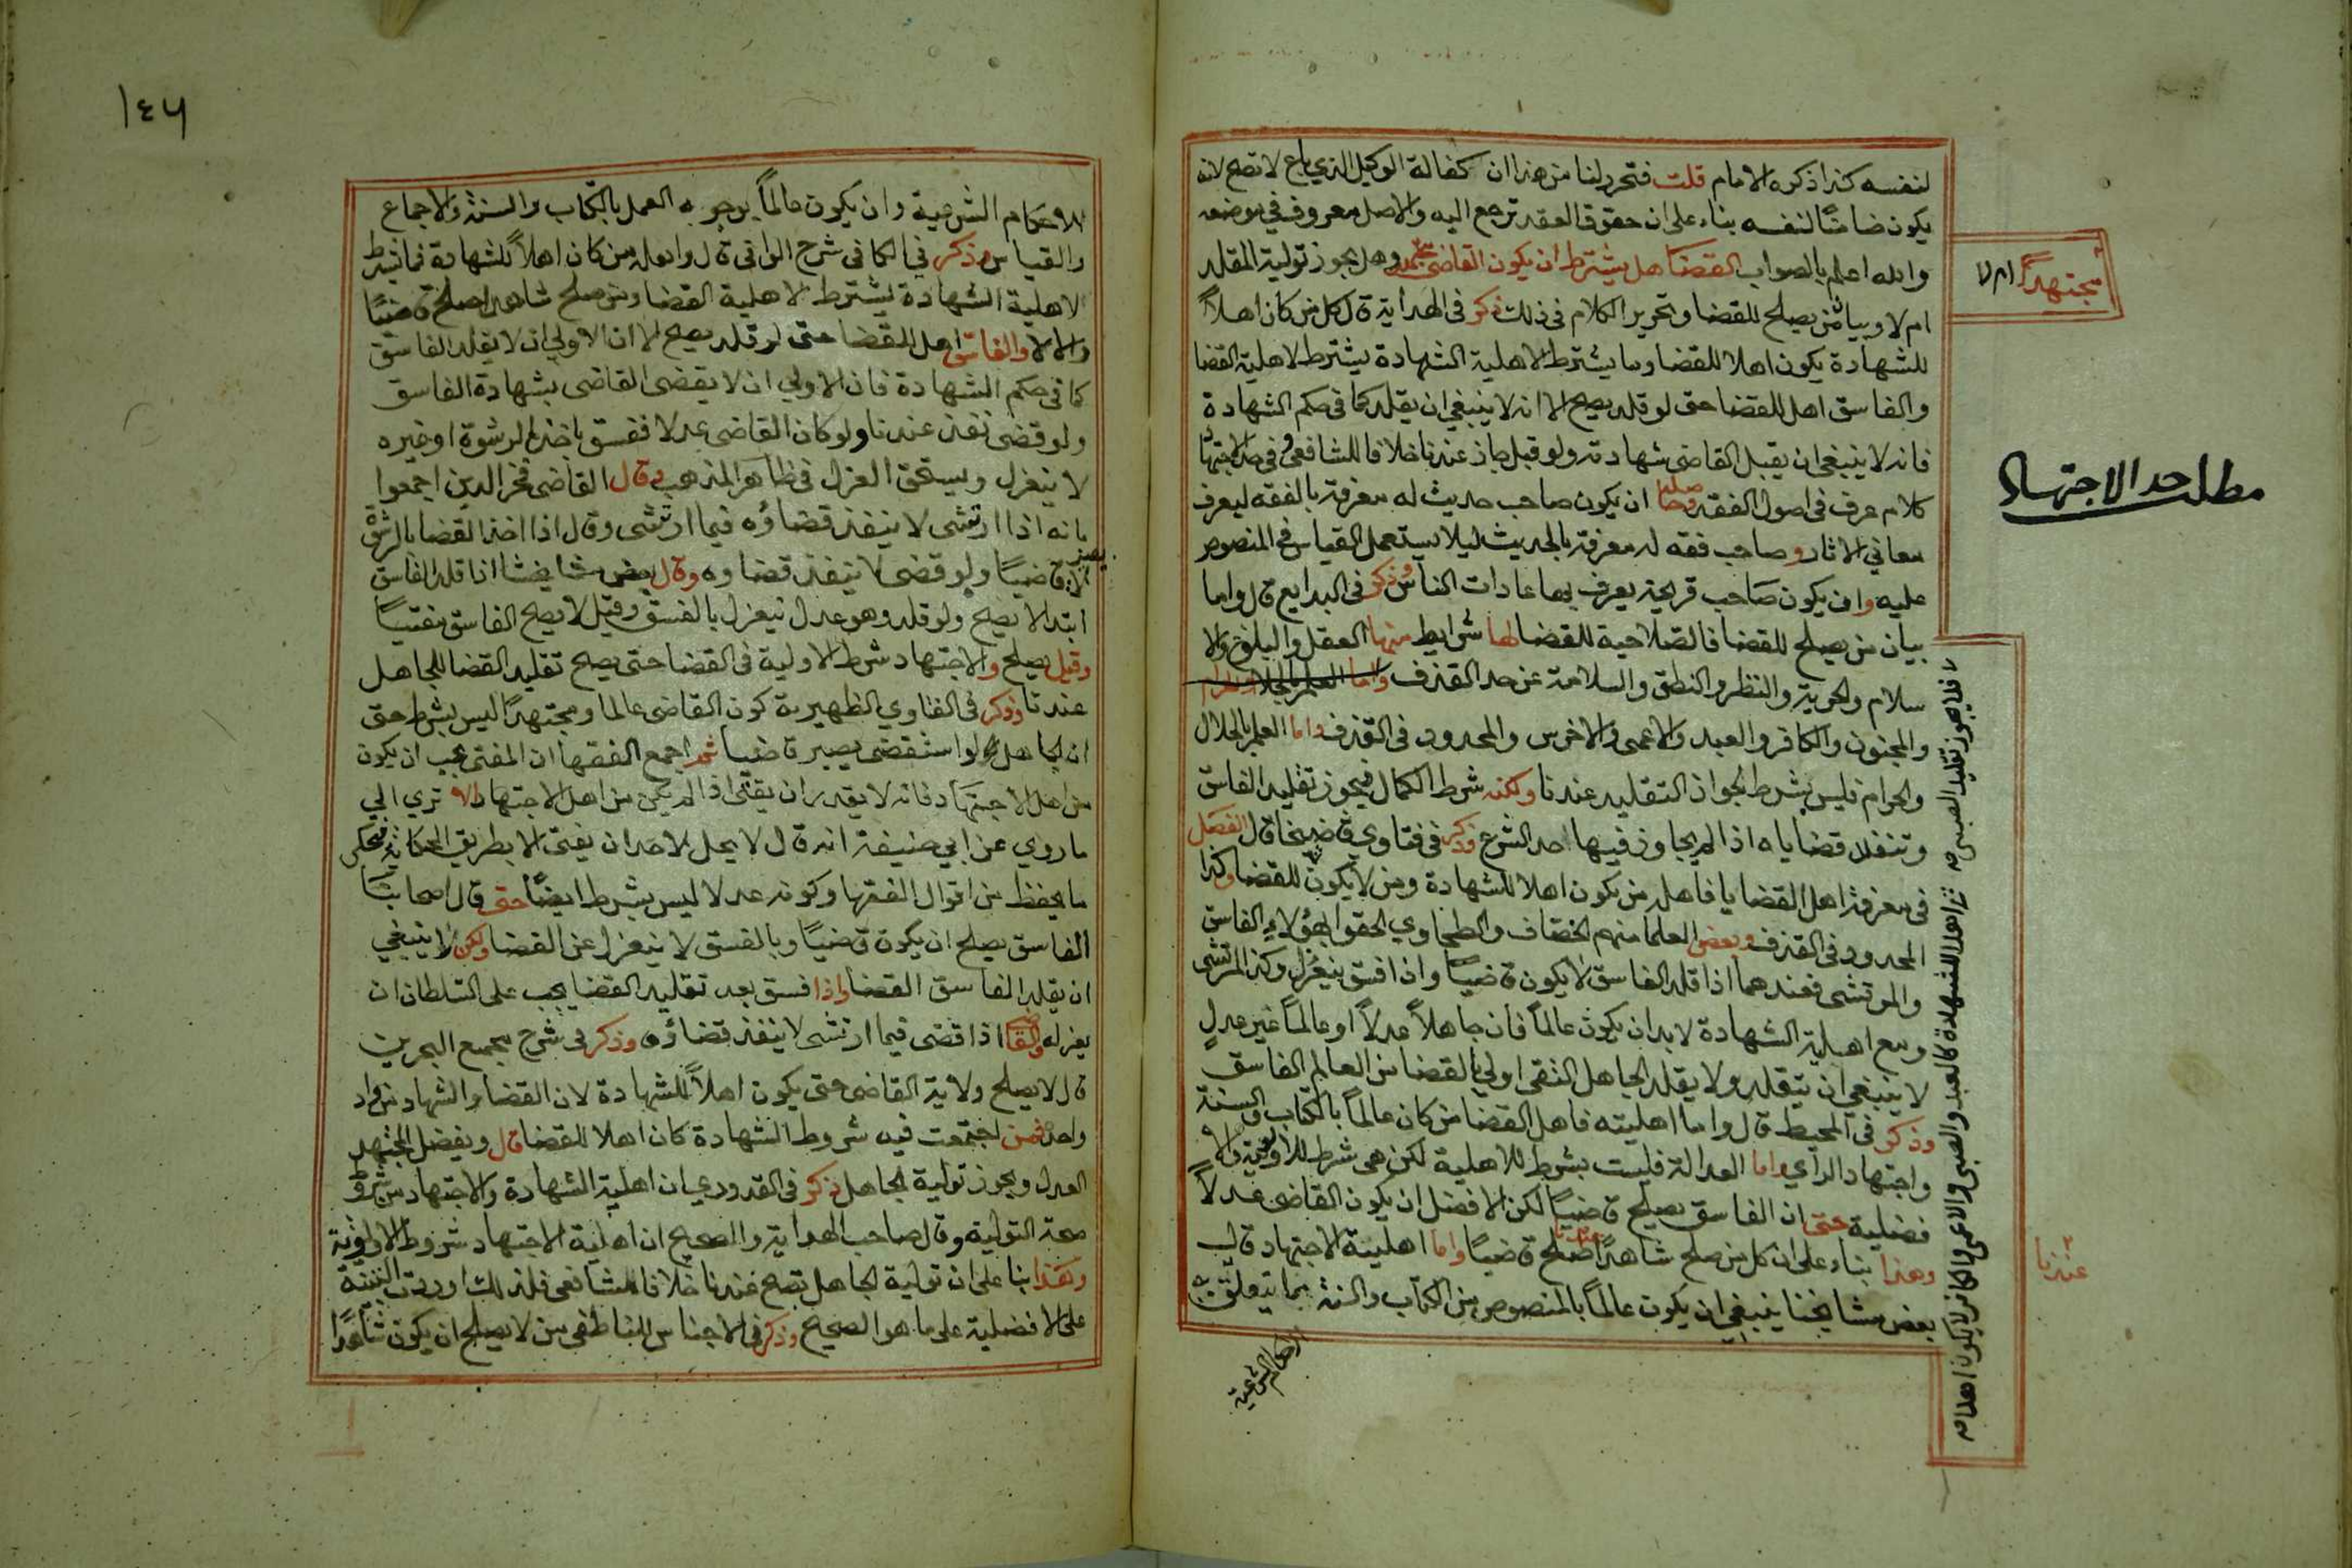 لنفسه كذا ذكره الامام قلت فتحرر لنا من هذا ان كفالة الوكيل الذي باع لا تصح لانه
يكون ضامنا لنفسه بناء على ان حقوق العقد ترجع اليه والاصل معروف في موضعه
والله اعلم بالصواب القضا هل يشترط ان يكون القاضي مجتهد وهل يجوز تولية المقلد
مجتهداً ام لا
ام لا وبيان من يصلح للقضا وتحرير الكلام في ذلك ذكر في الهداية قال كل من كان اهلاً
للشهادة يكون اهلا للقضا وما يشترط لاهلية الشهادة يشترط لاهلية القضا
والفاسق اهل للقضا حتى لو قلد يصح الا انه لا ينبغي ان يقلد كما في حكم الشهادة
فانه لا ينبغي ان يقبل القاضي شهادته ولو قبل جاز عندنا خلافا للشافعي وفي حد الاجتهاد
مطلب حد الاجتهاد
كلام عرف في اصول الفقه وحاصله ان يكون صاحب حديث له معرفة بالفقه ليعرف
معاني الاثار وصاحب فقه له معرفة بالحديث ليلا يستعمل القياس في المنصوص
عليه وان يكون صاحب قريحة يعرف بها عادات الناس وذكر في البدايع قال واما
بيان من يصلح للقضا فالصلاحية للقضا لها شرايط منها العقل والبلوغ والا
سلام والحرية والنظر والنطق والسلامة عن حد القذف واما العلم بالحلال والحرام
فلا يجوز تقليد الصبي
والمجنون والكافر والعبد والاعمى والاخرس والمحدود في القذف واما العلم بالحلال
والحرام فليس بشرط لجواز التقليد عندنا ولكنه شرط الكمال فيجوز تقليد الفاسق
وتنفذ قضاياه اذا لم يجاوز فيها حد الشرع وذكر في فتاوي قاضيخان قال الفصل
في معرفة اهل القضايا فاهله من يكون اهلا للشهادة ومن لا يكون للقضا وكذا
اهلا للشهادة كالعبد والصبي والاعمى والكافر لا يكون اهلا
المحدود في القذف وبعض العلما منهم الخصاف والطحاوي الحقوا بهؤلاء الفاسق
والمرتشي فعندهما اذا قلد الفاسق لا يكون قاضياً واذا فسق ينعزل وكذا المرتشي
ومع اهلية الشهادة لا بد ان يكون عالماً فان جاهلاً عدلاً او عالماً غير عدلٍ
لا ينبغي ان يتقلد ولا يقلد الجاهل التقي اولى بالقضا من العالم الفاسق
وذكر في المحيط قال واما اهليته فاهل القضا من كان عالماً بالكتاب والسنة
واجتهاد الرأي واما العدالة فليست بشرط للاهلية لكن هي شرط للاولوية والا
فضلية حتى ان الفاسق يصلح قاضياً لكن الافضل ان يكون القاضي عدلاً
وهذا بناء على ان كل من صلح شاهداً صلح قاضياً واما اهلية الاجتهاد قال
عندنا
بعض مشايخنا ينبغي ان يكون عالماً بالمنصوص من الكتاب والسنة بما يتعلق به
الاحكام الشرعية
١٤٦
الاحكام الشرعية وان يكون عالماً بوجوه العمل بالكتاب والسنة والاجماع
والقياس وذكر في الكافي شرح الوافي قال واهله من كان اهلاً للشهادة فما شرط
لاهلية الشهادة يشترط لاهلية القضا ومن صلح شاهدا صلح قاضياً
والا لا والفاسق اهل للقضا حتى لو قلد يصح الا ان الاولي ان لا يقلد الفاسق
كما في حكم الشهادة فان الاولي ان لا يقضي القاضي بشهادة الفاسق
ولو قضى نفذ عندنا ولو كان القاضي عدلا ففسق باخذ الرشوة او غيره
لا ينعزل ويستحق العزل في ظاهر المذهب وقال القاضي فخر الدين اجمعوا
بانه اذا ارتشى لا ينفذ قضاؤه فيما ارتشى وقال اذا اخذ القضا بالرشوة
لا يصير قاضياً ولو قضى لا ينفذ قضاوه وقال بعض مشايخنا اذا قلد الفاسق
ابتدا لا يصح ولو قلد وهو عدل ينعزل بالفسق وقيل لا يصح الفاسق مفتياً
وقيل يصلح والاجتهاد شرط الاولية في القضا حتى يصح تقليد القضا للجاهل
عندنا وذكر في الفتاوي الظهيرية كون القاضي عالما ومجتهداً ليس بشرط حتى
ان الجاهل لو استقضى يصير قاضيا ثم اجمع الفقها ان المفتي يجب ان يكون
من اهل الاجتهاد فانه لا يقدر ان يفتي اذا لم يكن من اهل الاجتهاد الا تري الي
ما روي عن ابي حنيفة انه قال لا يحل لاحد ان يفتي الا بطريق الحكاية فيحكي
ما يحفظ من اقوال الفقها وكونه عدلا ليس بشرط ايضاً حتى قال اصحابنا
الفاسق يصلح ان يكون قاضياً وبالفسق لا ينعزل عن القضا ولكن لا ينبغي
ان يقلد الفاسق القضا واذا فسق بعد تقليد القضا يجب على السلطان ان
يعزله والقاضي اذا قضى فيما ارتشى لا ينفذ قضاؤه وذكر في شرح مجمع البحرين
قال لا يصلح ولاية القاضي حتى يكون اهلاً للشهادة لان القضا والشهاد من واد
واحد فمن اجتمعت فيه شروط الشهادة كان اهلا للقضا قال ويفضل المجتهد
العدل ويجوز تولية الجاهل ذكر في القدوري ان اهلية الشهادة والاجتهاد من شروط
صحة التولية وقال صاحب الهداية والصحيح ان اهلية الاجتهاد شروط الاولوية
وهذا بنا على ان تولية الجاهل تصح عندنا خلافا للشافعي فلذلك اوردت
على الافضلية على ما هو الصحيح وذكر في الاجناس للناطفي من لا يصلح ان يكون شاهداً